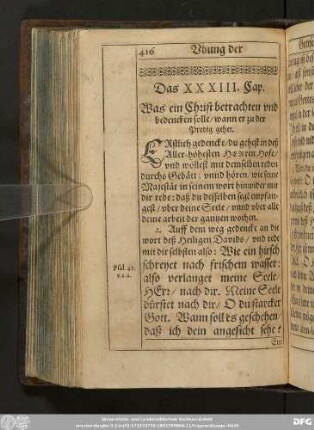 416 Vbung der
Das XXXIII. Cap.
Was ein Christ betrachten vnd
bedencken solle / wann er zu der
Predig gehet.
ERstlich gedencke / du gehest in deß
Aller-höhesten HErren Hofe /
vnd wöllest mit demselben reden
durchs Gebätt: vnnd hören / wie seine
Majestät in seinem wort hinwider mit
dir rede: daß du desselben segē empfan-
gest / vber deine Seele / vnnd vber alle
deine arbeit der gantzen wochen.
2. Auff dem weg gedenckt an die
wort deß Heiligen Davids / vnd rede
mit dir selbsten also: Wie ein hirsch
schreyet nach frischem wasser:
Psal 42.
v. 1. 2.
also verlanget meine Seele /
HErr / nach dir. Meine Seele
dürstet nach dir / O du starcker
Gott. Wann soll es geschehen /
dasz ich dein angesicht sehe?
Ein
DFG